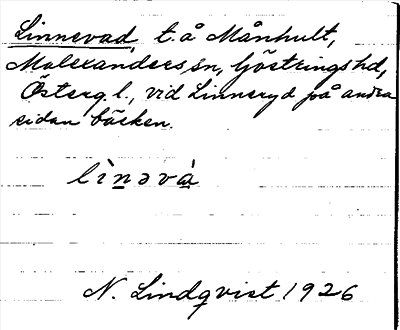 Linnevad, t. å Månhult,
Malexanders sn, Göstrings hd,
Österg. l., vid Linneryd på andra
sidan bäcken.
lìnəvà
N. Lindqvist 1926